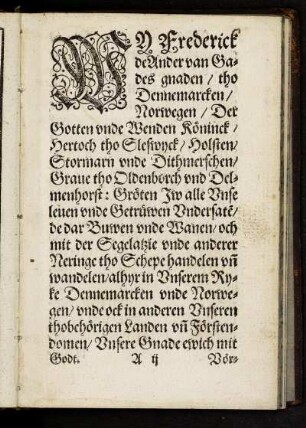 WY Frederick
de Ander van Ga-
des gnaden / tho
Dennemarcken /
Norwegen / Der
Gotten vnde Wenden Köninck /
Hertoch tho Sleswyck / Holsten /
Stormarn vnde Dithmerschen /
Graue tho Oldenborch vnd Del-
menhorst: Gröten Jw alle Vnse
leuen vnde Getrüwen Vndersatē /
de dar Buwen vnde Wanen / och
mit der Segelatzie vnde anderer
Neringe tho Schepe handelen vñ
wandelen / alhyr in Vnserem Ry-
ke Dennemarcken vnde Norwe-
gen / vnde ock in anderen Vnseren
thobehörigen Landen vñ Försten-
domen / Vnsere Gnade ewich mit
Godt. A ij Vör-